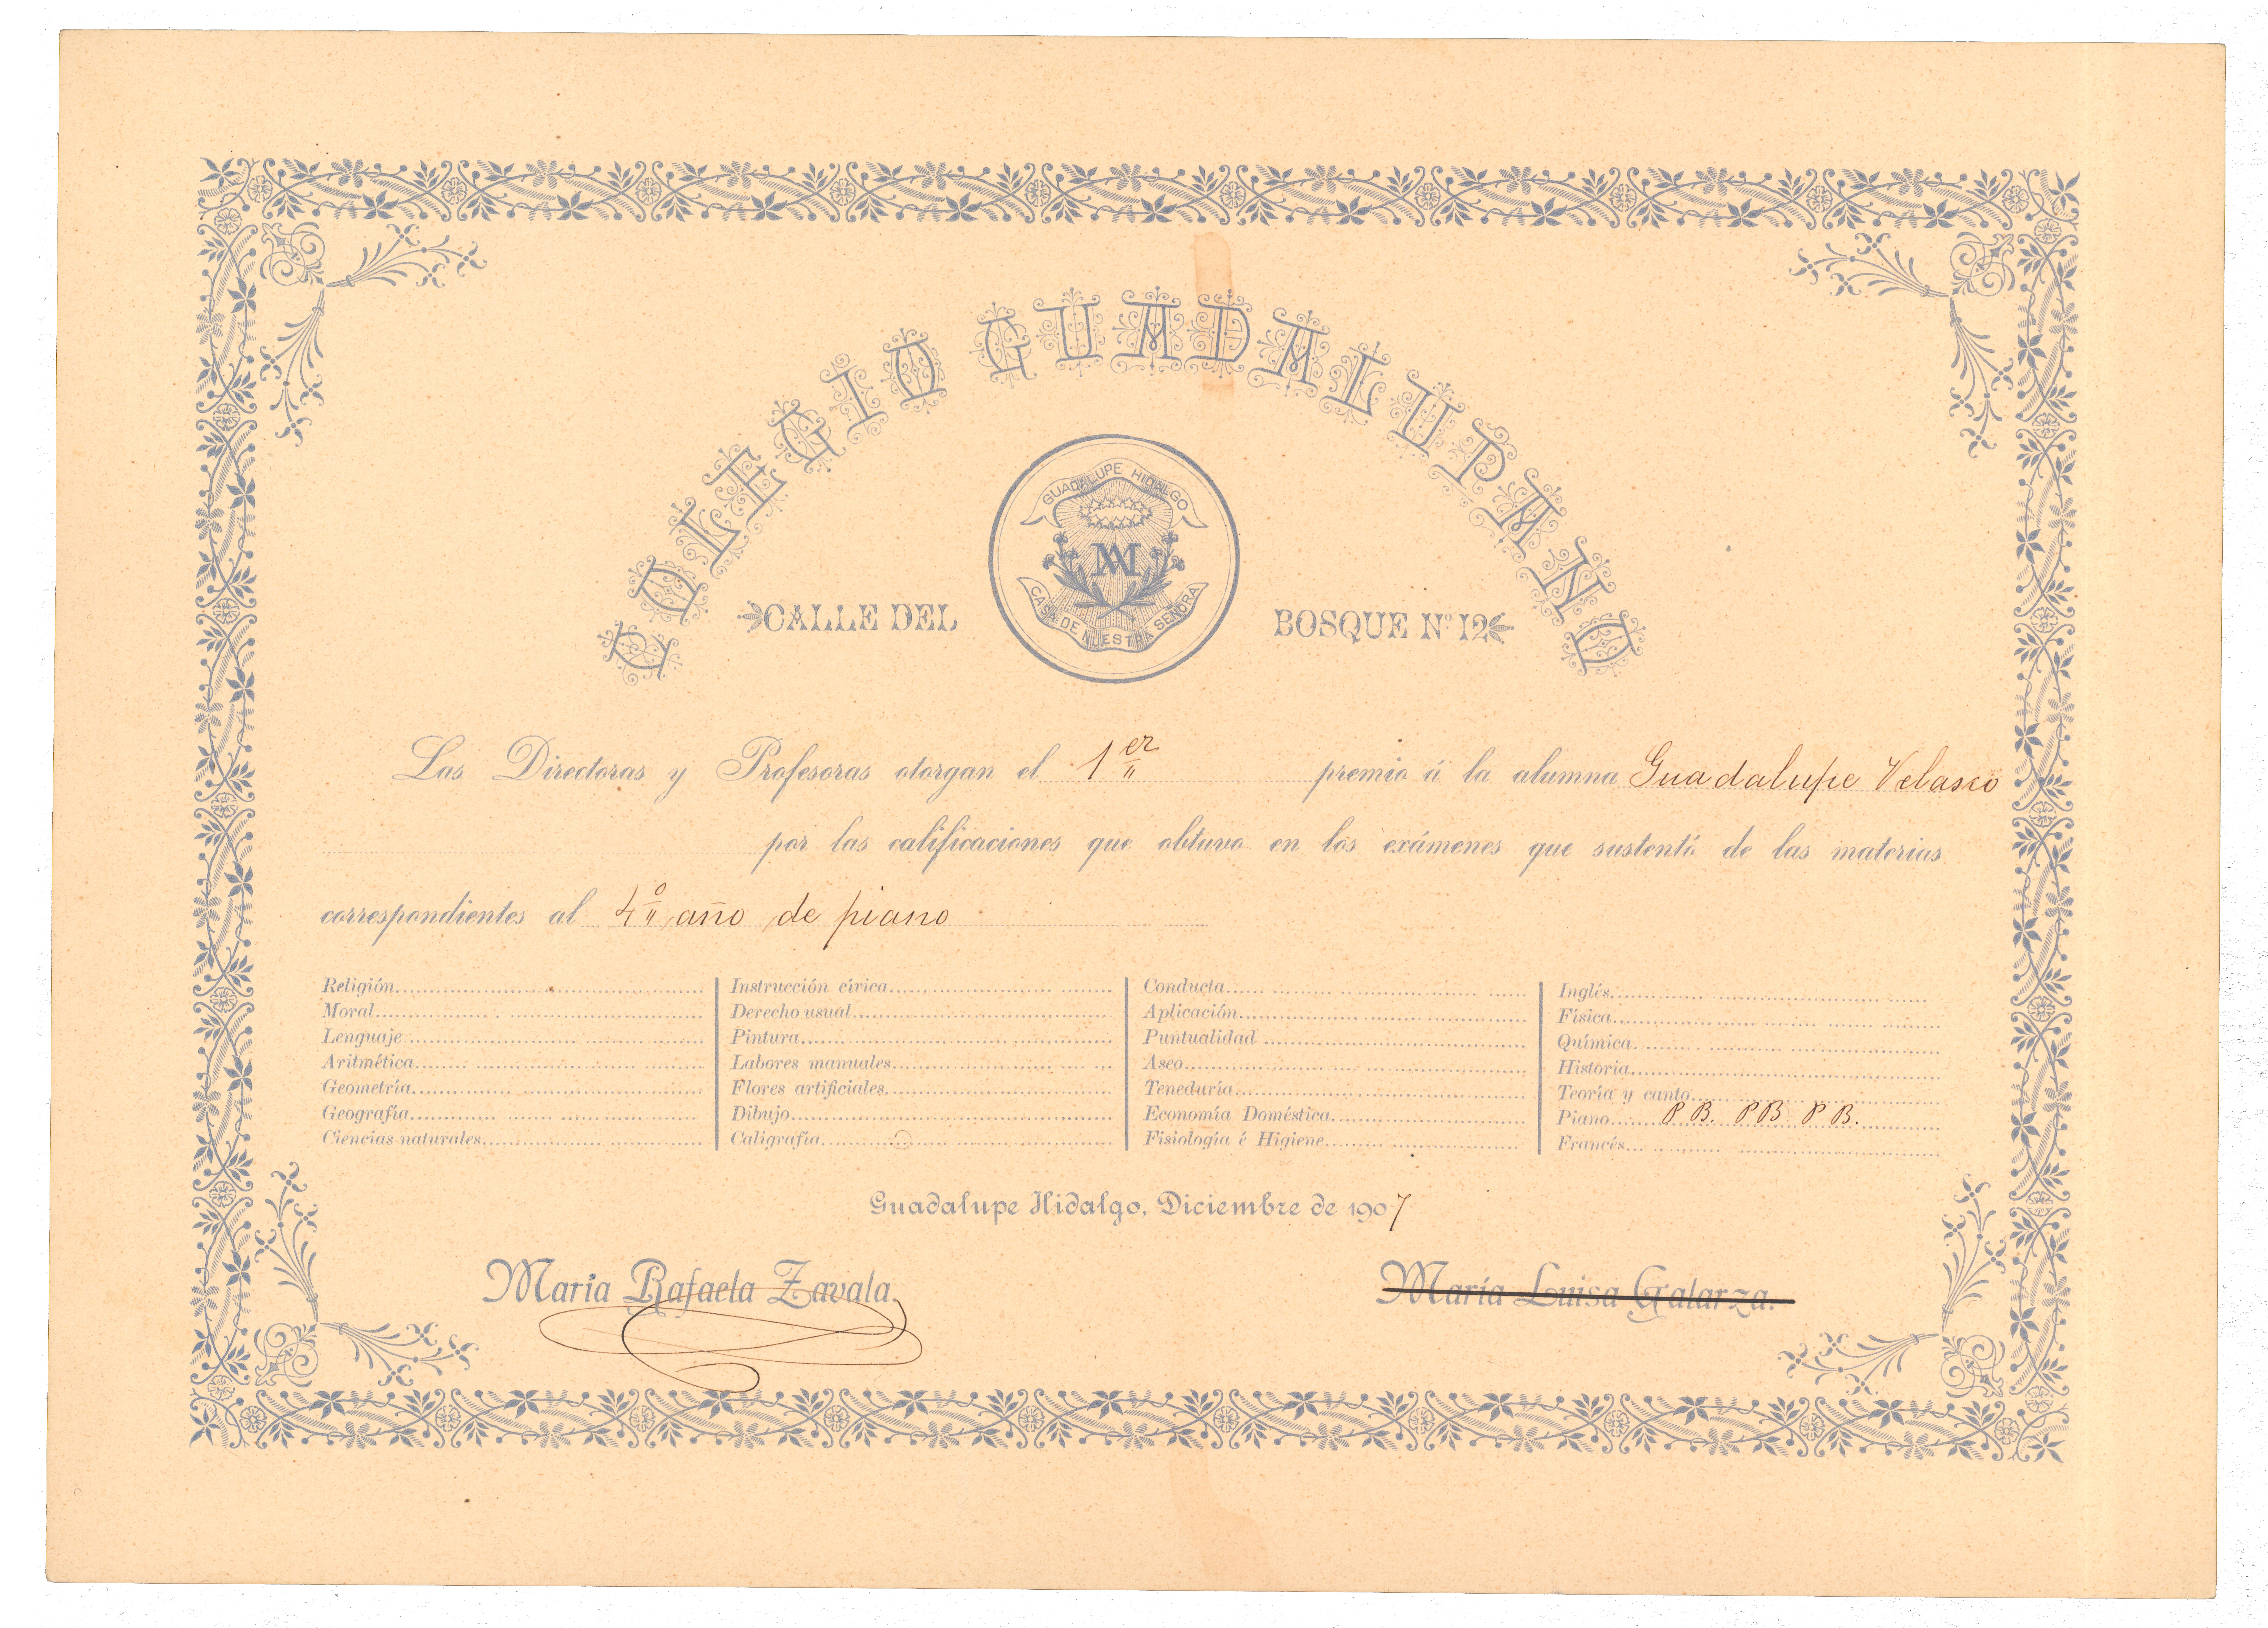 COLEGIO GUADALUPANO
GUADALUPE HIDALGO
MA
CASA DE NUESTRA SEÑORA
CALLE DEL BOSQUE Nº 12
Las Directoras y Profesoras otorgan el 1er premio á la alumna Guadalupe Velasco
por las calificaciones que obtuvo en los exámenes que sustentó de las materias
correspondientes al 4º año de piano
Religión
Moral
Lenguaje
Aritmética
Geometría
Geografía
Ciencias naturales
Instrucción cívica
Derecho usual
Pintura
Labores manuales
Flores artificiales
Dibujo
Caligrafía
Conducta
Aplicación
Puntualidad
Aseo
Teneduría
Economía Doméstica
Fisiología é Higiene
Inglés
Física
Química
Historia
Teoría y canto
Piano P B. P B P B.
Francés
Guadalupe Hidalgo, Diciembre de 1907
María Rafaela Zavala.
María Luisa Galarza.